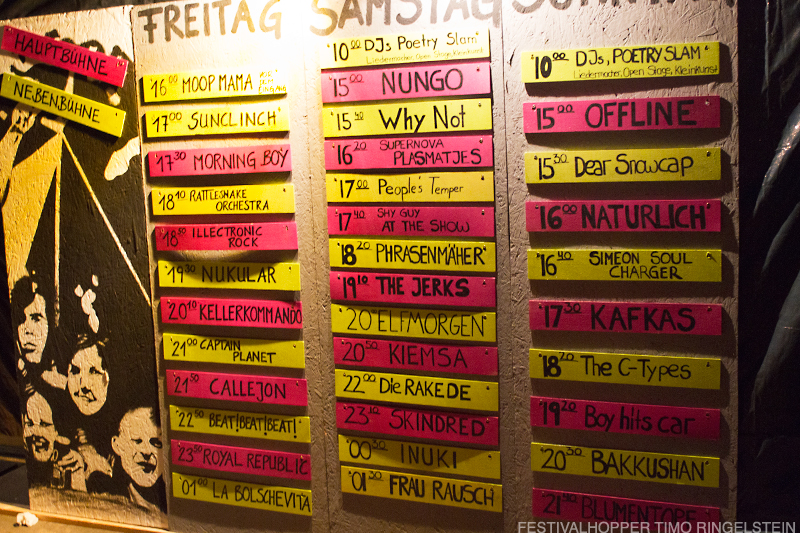 HAUPTBÜHNE
NEBENBÜHNE
FREITAG
16 00 MOOP MAMA
17 00 SUNCLINCH
17 30 MORNING BOY
18 10 RATTLESNAKE
ORCHESTRA
18 50 ILLECTRONIC
ROCK
19 30 NUKULAR
20 10 KELLERKOMMANDO
21 00 CAPTAIN
PLANET
21 50 CALLEJON
22 50 BEAT!BEAT!BEAT!
23 50 ROYAL REPUBLIC
01 00 LA BOLSCHEVITA
SAMSTAG
10 00 DJs Poetry Slam
Liedermacher, Open Stage, Kleinkunst
15 00 NUNGO
15 40 Why Not
16 20 SUPERNOVA
PLASMATJES
17 00 People's Temper
17 40 SHY GUY
AT THE SHOW
18 20 PHRASENMÄHER
19 10 THE JERKS
20 00 ELFMORGEN
20 50 KIEMSA
22 00 DIe RAKEDE
23 10 SKINDRED
00 30 INUKI
01 30 FRAU RAUSCH
10 00 DJs, POETRY SLAM
Liedermacher, Open Stage, Kleinkunst
15 00 OFFLINE
15 30 Dear Snowcap
16 00 NATURLICH
16 40 SIMEON SOUL
CHARGER
17 30 KAFKAS
18 20 The C-Types
19 20 Boy hits car
20 30 BAKKUSHAN
BLUMENTOPF
FESTIVALHOPPER TIMO RINGELSTEIN